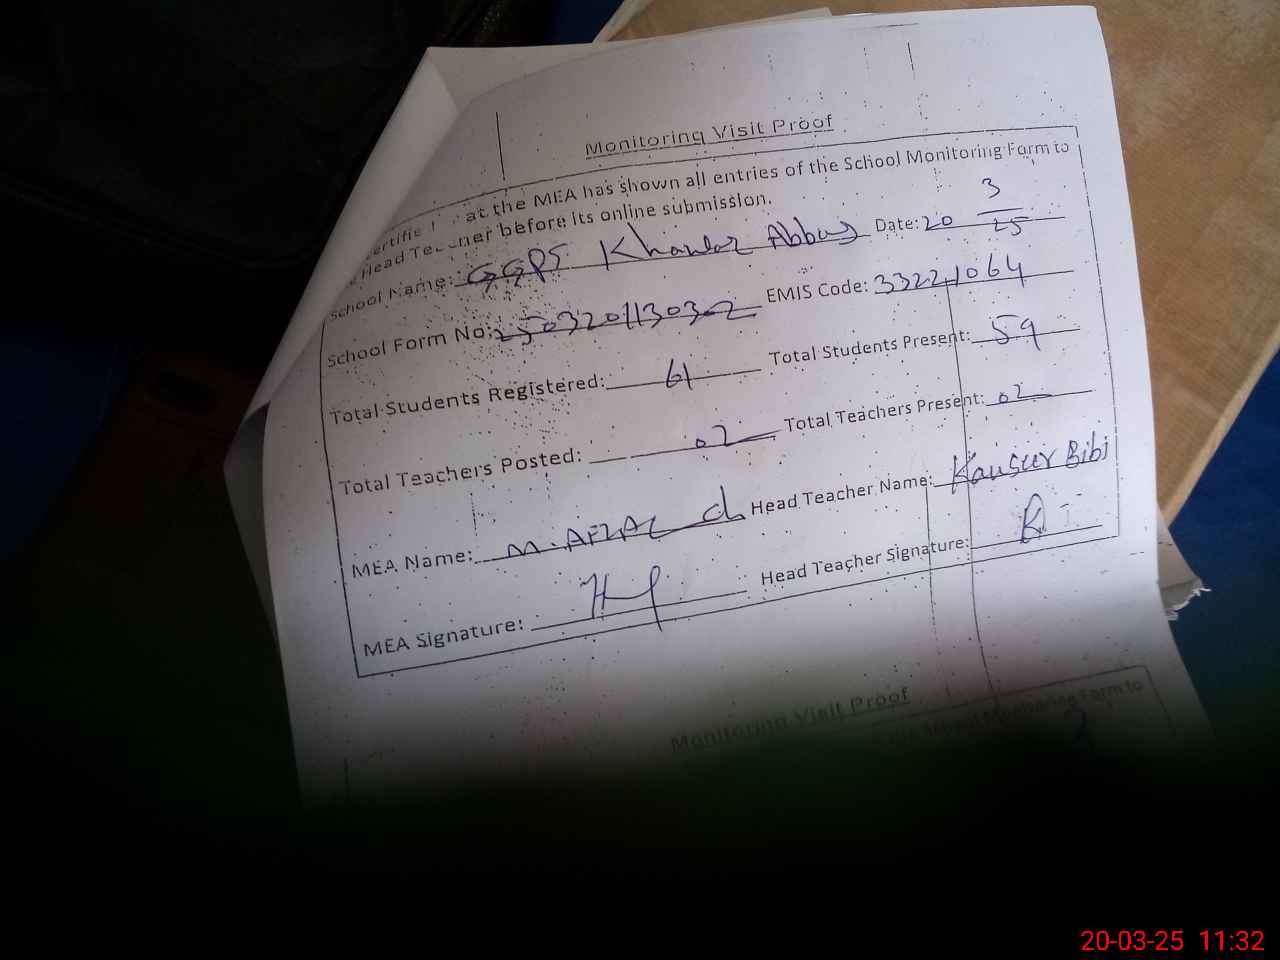 Monitoring Visit Proof
at the MEA has shown all entries of the School Monitoring Form to
Head Teacher before its online submission.
School Name: GGPS Khawar Abbas Date: 20 3/25
School Form No: 2503201130302 EMIS Code: 33221064
Total Students Registered: 61 Total Students Present: 59
Total Teachers Posted: 02 Total Teachers Present: 02
MEA Name: M. AFZAL Ch Head Teacher Name: Kausur Bibi
MEA Signature: Head Teacher Signature:
Monitoring Visit Proof
School Monitoring Form to
20-03-25 11:32